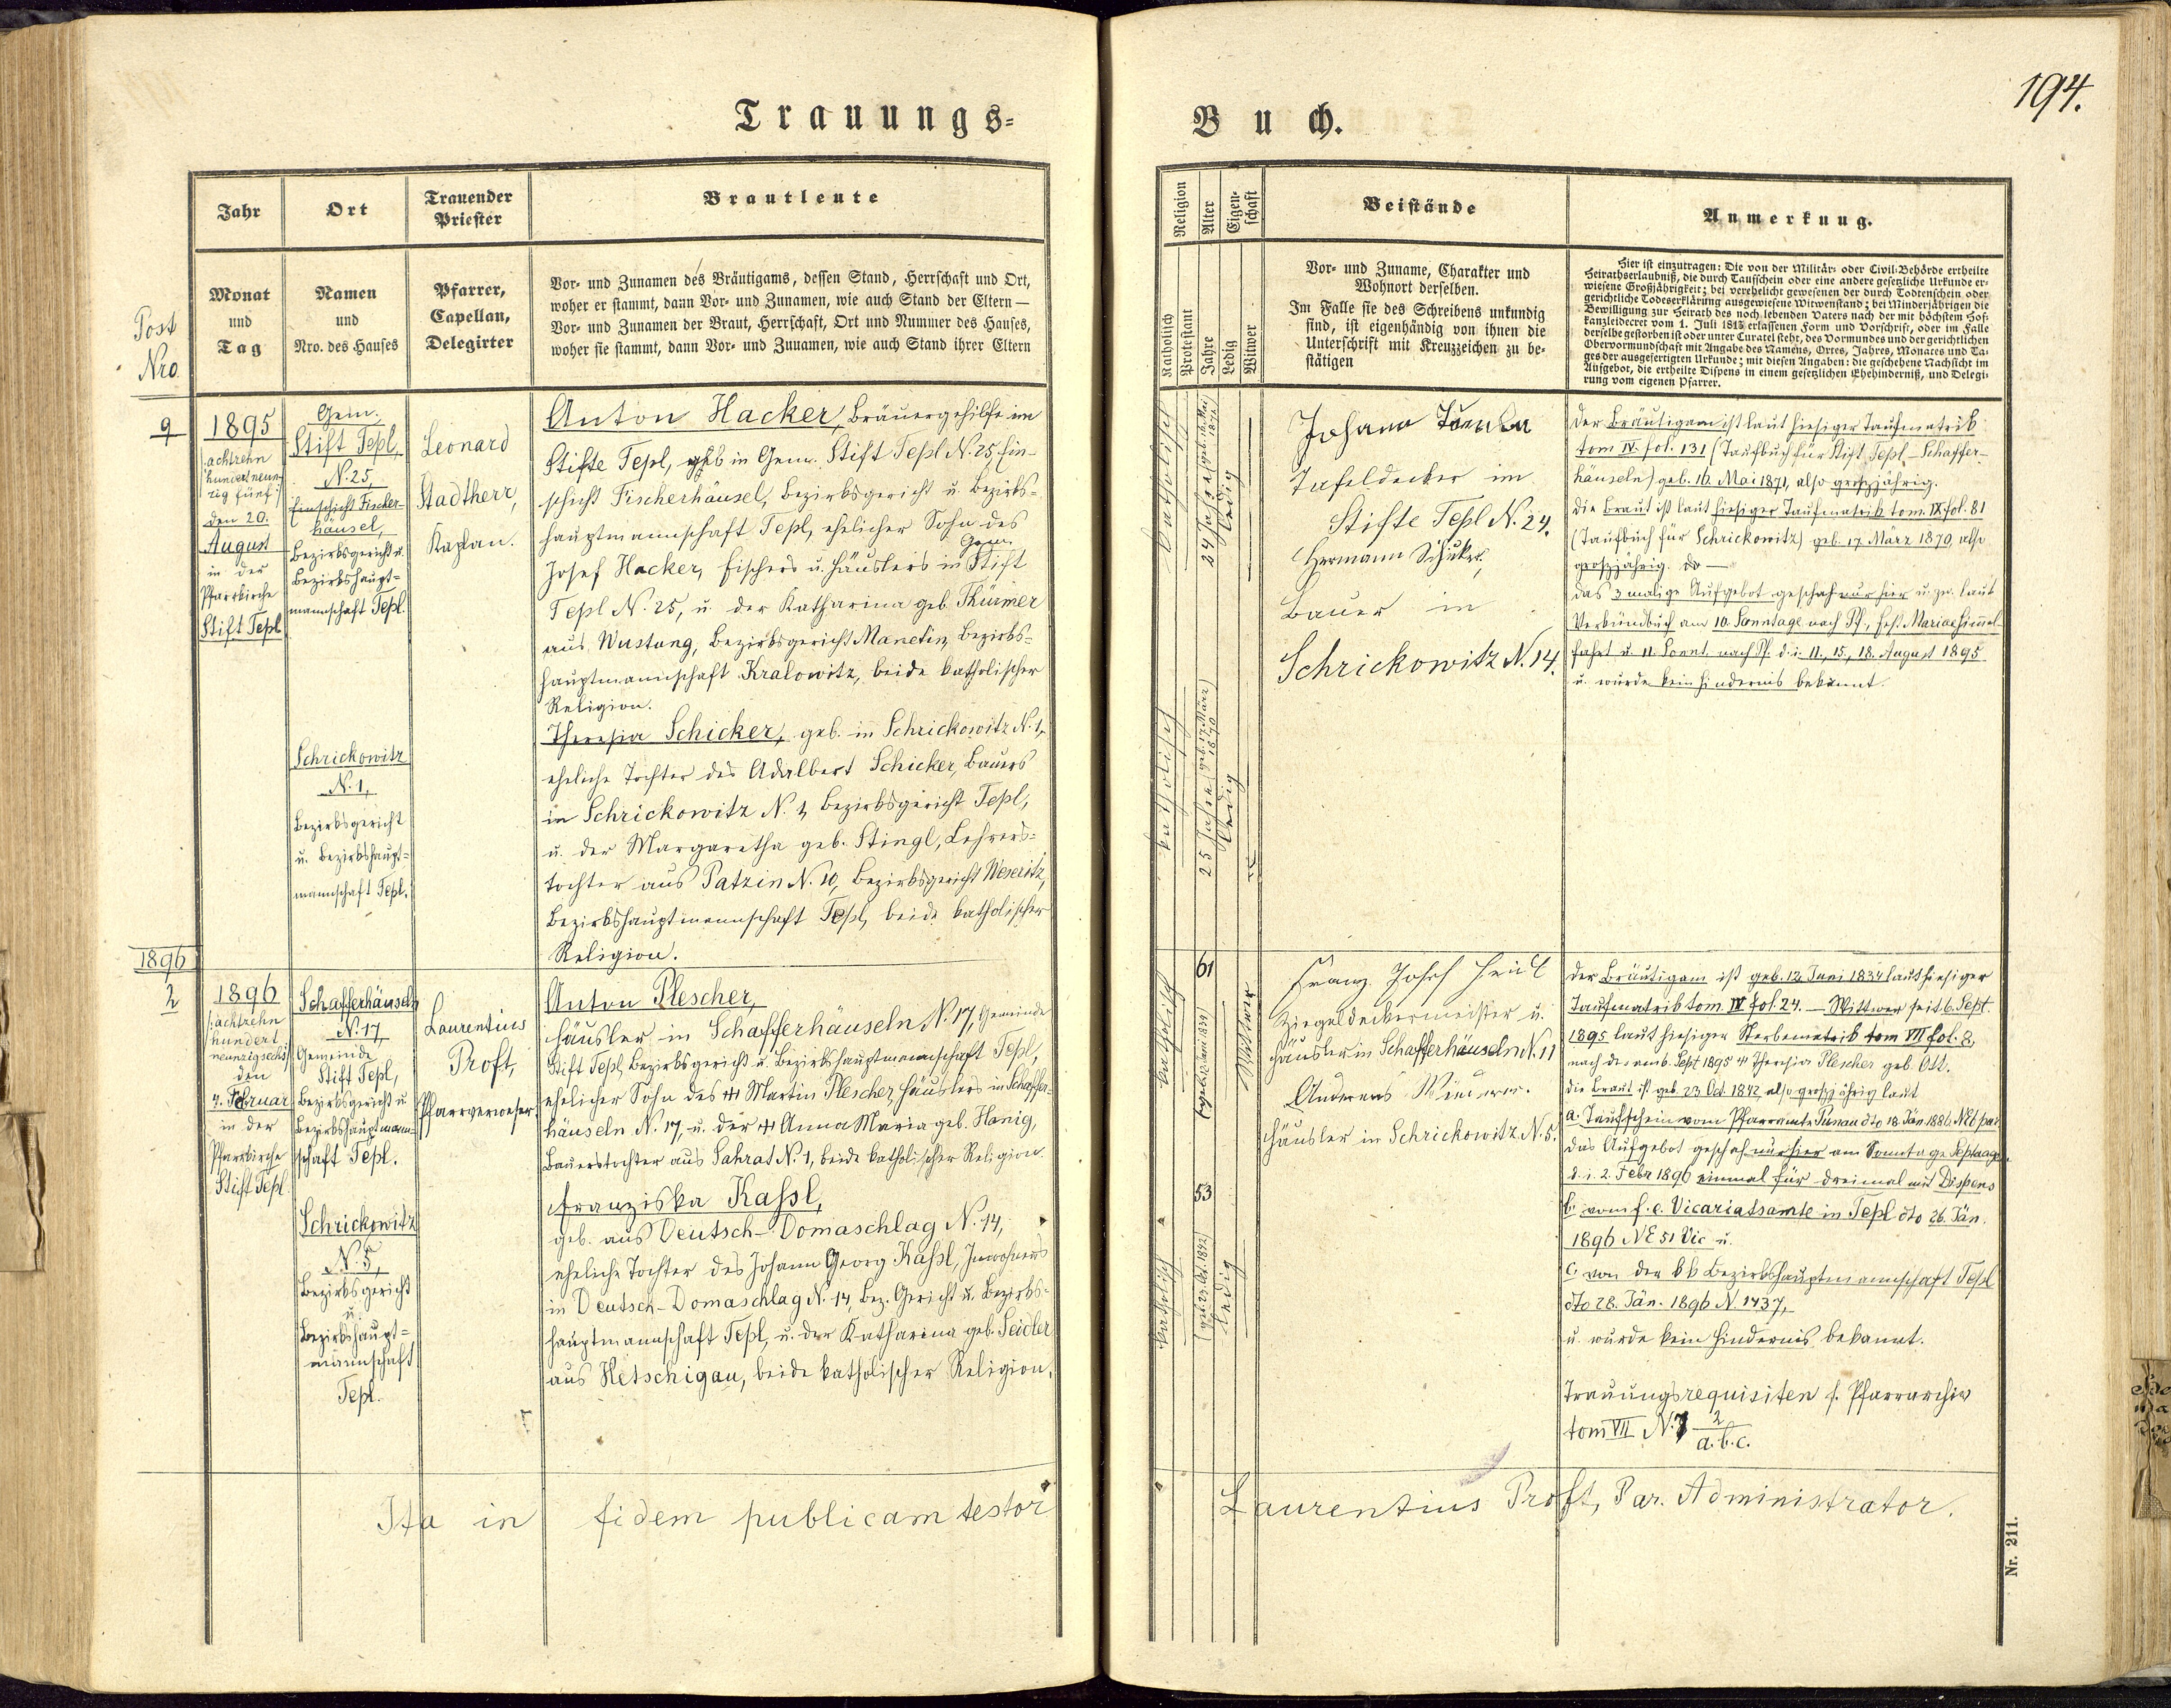 Trauungs-
Buch.
194.
Post
Nro
Jahr
Ort
Trauender
Priester
Brautleute
Monat
und
Tag
Namen
und
Nro. des Hauses
Pfarrer,
Capellan,
Delegirter
Vor- und Zunamen des Bräutigams, dessen Stand, Herrschaft und Ort,
woher er stammt, dann Vor- und Zunamen, wie auch Stand der Eltern —
Vor- und Zunamen der Braut, Herrschaft, Ort und Nummer des Hauses,
woher sie stammt, dann Vor- und Zunamen, wie auch Stand ihrer Eltern
Religion
Alter
Eigen-
schaft
Katholisch
Protestant
Jahre
Ledig
Witwer
Beistände
Vor- und Zuname, Charakter und
Wohnort derselben.
Im Falle sie des Schreibens unkundig
sind, ist eigenhändig von ihnen die
Unterschrift mit Kreuzzeichen zu be-
stätigen
Anmerkung.
Hier ist einzutragen: Die von der Militär- oder Civil-Behörde ertheilte
Heirathserlaubniß, die durch Taufschein oder eine andere gesetzliche Urkunde er-
wiesene Großjährigkeit; bei verehelicht gewesenen der durch Todtenschein oder
gerichtliche Todeserklärung ausgewiesene Witwenstand; bei Minderjährigen die
Bewilligung zur Heirath des noch lebenden Vaters nach der mit höchstem Hof-
kanzleidecret vom 1. Juli 1813 erlassenen Form und Vorschrift, oder im Falle
derselbe gestorben ist oder unter Curatel steht, des Vormundes und der gerichtlichen
Obervormundschaft mit Angabe des Namens, Ortes, Jahres, Monates und Ta-
ges der ausgefertigten Urkunde; mit diesen Angaben: die geschehene Nachsicht im
Aufgebot, die ertheilte Dispens in einem gesetzlichen Ehehinderniß, und Delegi-
rung vom eigenen Pfarrer.
9
1895
achtzehn
hundert neun-
zig fünf
den 20.
August
in der
Pfarrkirche
Stift Tepl
Gem.
Stift Tepl,
N. 25,
Einschicht Fischer-
häusel,
Bezirksgericht u.
Bezirkshaupt-
mannschaft Tepl.
Schrickowitz
N. 1,
Bezirksgericht
u. Bezirkshaupt-
mannschaft Tepl.
Leonard
Stadtherr,
Kaplan.
Anton Hacker, Bräuergehilfe im
Stifte Tepl, geb in Gem. Stift Tepl N. 25, Ein-
schicht Fischerhäusel, Bezirksgericht u. Bezirks-
hauptmannschaft Tepl, ehelicher Sohn des
Josef Hacker, Fischers u. Häuslers in Gem. Stift
Tepl N. 25, u. der Katharina geb. Thürmer
aus Wustung, Bezirksgericht Manetin, Bezirks-
hauptmannschaft Kralowitz, beide katholischer
Religion.
Theresia Schicker, geb. in Schrickowitz N. 1,
eheliche Tochter des Adalbert Schicker, Bauers
in Schrickowitz N. 1, Bezirksgericht Tepl,
u. der Margaretha geb. Stingl, Lehrers-
tochter aus Patzin N. 10, Bezirksgericht Weseritz,
Bezirkshauptmannschaft Tepl, beide katholischer
Religion.
katholisch
24 Jahre (geb. 16. Mai 1871)
ledig
katholisch
25 Jahre (geb. 17. März 1870)
ledig
Johann
Tafeldecker im
Stifte Tepl N. 24.
Hermann Schicker,
Bauer in
Schrickowitz N. 14.
Der Bräutigam ist laut hiesiger Taufmatrik
tom IV. fol. 131 (Taufbuch für Stift Tepl – Schaffer-
häuseln) geb. 16. Mai 1871, also großjährig.
Die Braut ist laut hiesiger Taufmatrik tom. IX fol. 81
(Taufbuch für Schrickowitz) geb. 17. März 1870, also
großjährig.
Das 3 malige Aufgebot geschah nur hier u. zw. laut
Verkündbuch am 10. Sonntage nach Pf., Fest Mariae Himmel-
fahrt u. 11. Sonnt. nach Pf. d. i. 11., 15., 18. August 1895
u. wurde kein Hindernis bekannt.
1896
2
1896
achtzehn
hundert
neunzigsechs
den
4. Februar
in der
Pfarrkirche
Stift Tepl
Schafferhäuseln
N. 17,
Gemeinde
Stift Tepl,
Bezirksgericht u.
Bezirkshauptmann-
schaft Tepl.
Schrickowitz
N. 5,
Bezirksgericht
u.
Bezirkshaupt-
mannschaft
Tepl.
Laurentius
Proft,
Pfarrverweser
Anton Plescher,
Häusler in Schafferhäuseln N. 17, Gemeinde
Stift Tepl, Bezirksgericht u. Bezirkshauptmannschaft Tepl,
ehelicher Sohn des Martin Plescher, Häuslers in Schaffer-
häuseln N. 17, u. der Anna Maria geb. Hanig,
Bauerstochter aus Sahrat N. 1, beide katholischer Religion.
Franziska Kassl,
geb. aus Deutsch-Domaschlag N. 14,
eheliche Tochter des Johann Georg Kassl, Inwohners
in Deutsch-Domaschlag N. 14, Bez. Gericht u. Bezirks-
hauptmannschaft Tepl, u. der Katharina geb. Seidler
aus Hetschigau, beide katholischer Religion.
katholisch
61
geb. 12. Juni 1834
Wittwer
katholisch
53
(geb. 23. Oct. 1842)
ledig
Franz Josef Heidl
Ziegeldeckermeister u.
Häusler in Schafferhäuseln N. 11
Andreas
Häusler in Schrickowitz N. 5.
Der Bräutigam ist geb. 12. Juni 1834 laut hiesiger
Taufmatrik tom. IV fol. 24. — Wittwer seit 6. Sept.
1895 laut hiesiger Sterbematrik tom VII fol. 8,
nach der am 6. Sept 1895 Theresia Plescher geb. Ott.
Die Braut ist geb. 23. Oct. 1842, also großjährig laut
a. Taufschein vom Pfarramte Punau dto 18. Jän. 1886 N 26 par
Das Aufgebot geschah nur hier am Sonntage Septuag.
d. i. 2. Febr 1896 einmal für dreimal mit Dispens
b. vom f. e. Vicariatsamte in Tepl dto 26. Jän.
1896 NE 51 Vic u.
c. von der kk Bezirkshauptmannschaft Tepl
dto 28. Jän. 1896 N. 1437,
u. wurde kein Hindernis bekannt.
Trauungsrequisiten s. Pfarrarchiv
tom VII N. 7 2
a. b. c.
Ita in fidem publicam testor
Laurentius Proft, Par. Administrator.
Nr. 211.